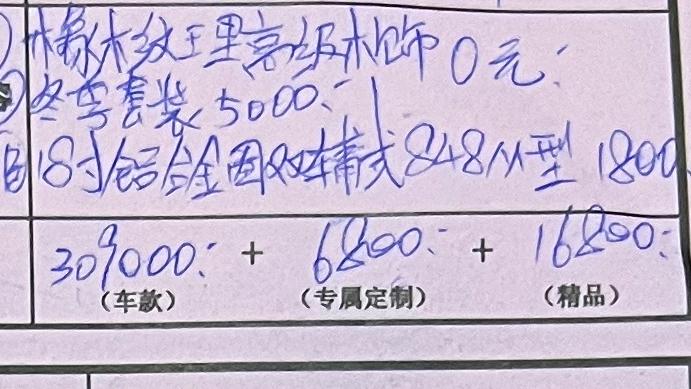 橡木纹王里高级木饰 0元:
冬季套装 5000:-
18寸铝合金圈双辐式 848M型 1800
309000:- + 6800:- + 16800:-
(车款) (专属定制) (精品)